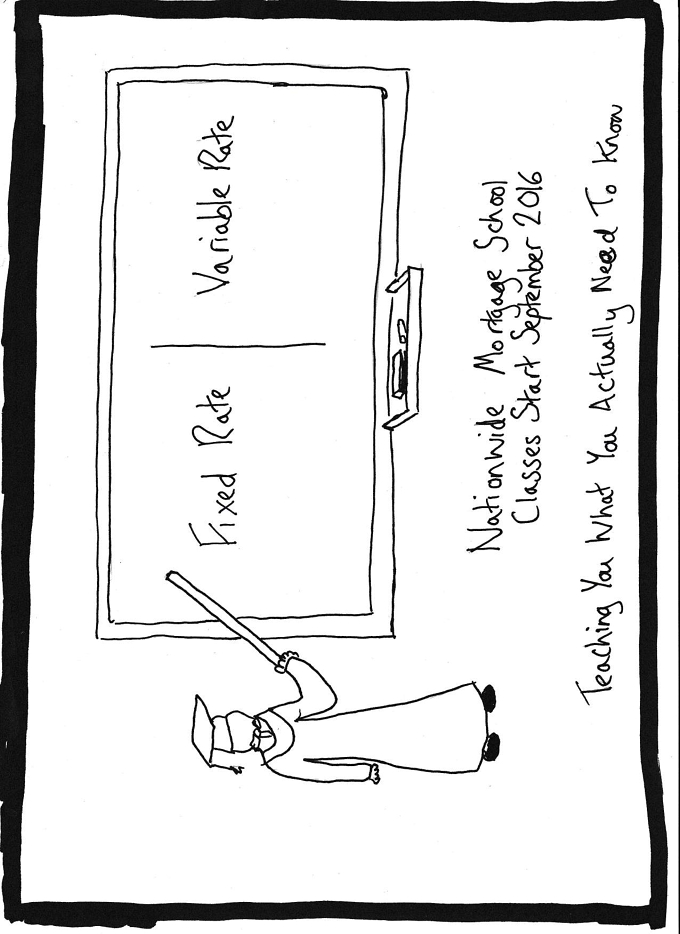 Fixed Rate
Variable Rate
Nationwide Mortgage School
Classes Start September 2016
Teaching You What You Actually Need To Know